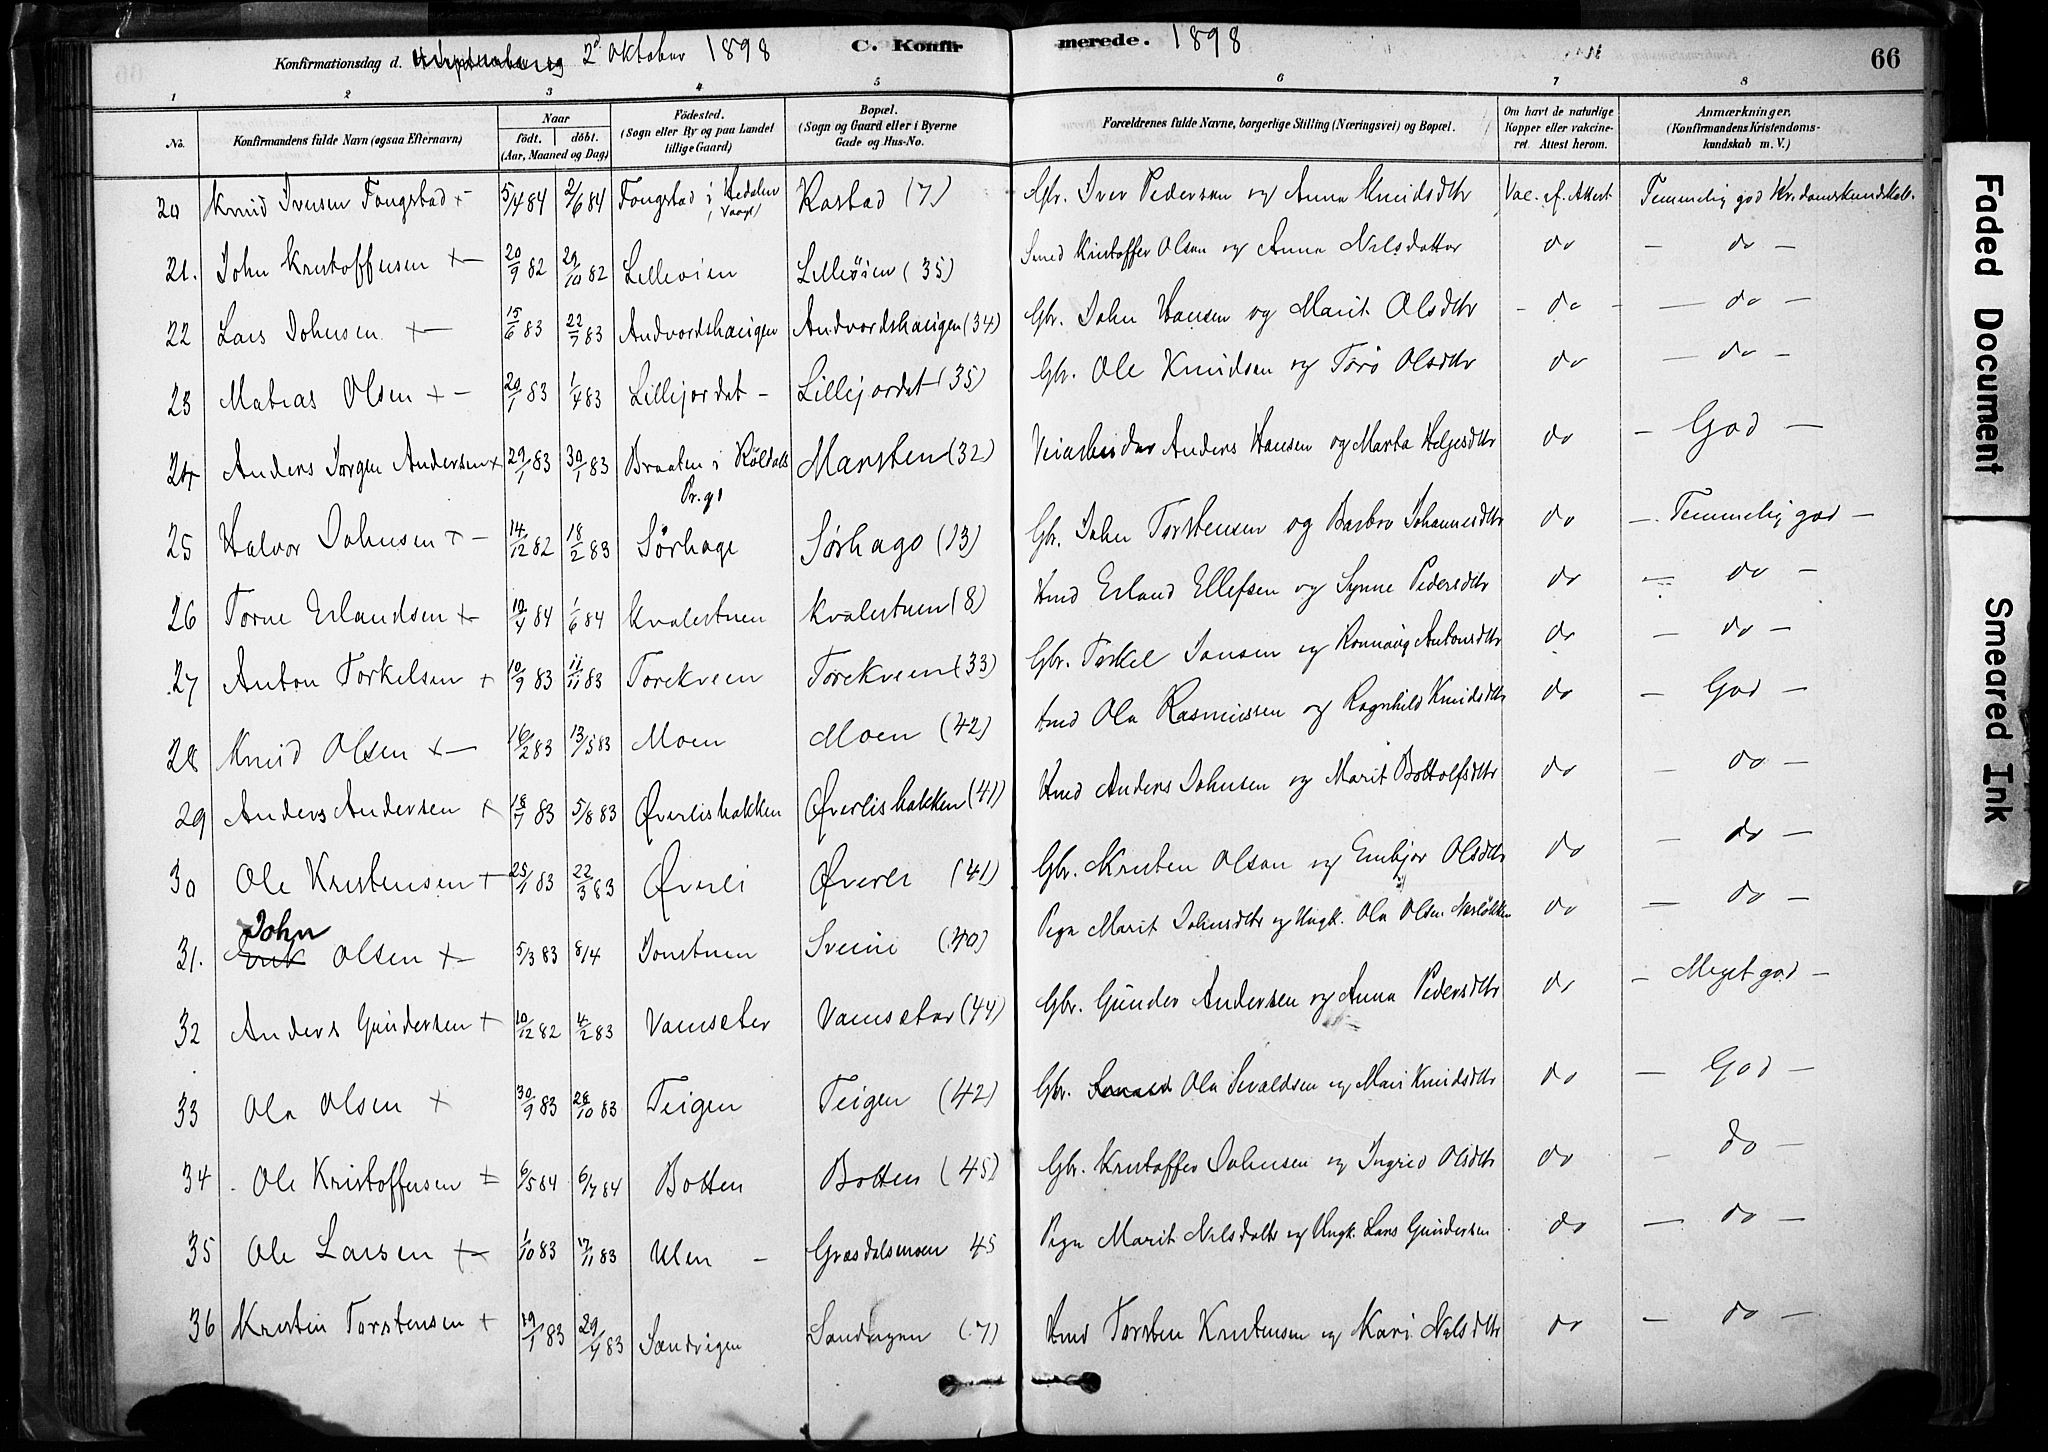 Konfirmationsdag d. 2d Oktober 1898 C. Konfirmerede. 1898 66
1 2 3 4 5 6 7 8
No. Konfirmandens fulde Navn (ogsaa Efternavn) Naar født. døbt. (Aar, Maaned og Dag) Födested. (Sogn eller By og paa Landet tillige Gaard) Bopæl. (Sogn og Gaard eller i Byerne Gade og Hus-No. Forældrenes fulde Navne, borgerlige Stilling (Næringsvei) og Bopæl. Om havt de naturlige Kopper eller vakcineret. Attest herom. Anmærkninger. (Konfirmandens Kristendomskundskab m. V.)
20 Knud Iversen Fongstad + 5/4 84 2/6 84 Fongstad i Hedalen (Vaage) Rastad (7) Gbr. Iver Pedersen og Anna Knudsdtr Vac. ef. Attest Temmelig god Kr.domskundskab.
21. John Kristoffersen +- 20/9 82 29/10 82 Lilleøien Lilleøien (35) Smed Kristoffer Olsen og Anna Nilsdatter do - do -
22 Lars Johnsen +- 15/6 83 22/7 83 Andvordshaugen Andvordshaugen (34) Gbr. John Hansen og Marit Olsdtr - do - - do -
23 Matias Olsen + - 20/1 83 1/4 83 Lillejordet - Lillejordet (35) Gbr. Ole Knudsen og Torø Olsdtr do - do -
24 Anders Jørgen Andersen + 29/1 83 30/1 83 Braaten i Røldals Pr.gj Marsten (32) Veiarbeider Anders Hansen og Marta Helgesdtr do - God -
25 Halvor Johnsen + - 14/12 82 18/2 83 Sørhage Sørhage (13) Gbr. John Torstensen og Barbro Johannesdtr do - Temmelig god -
26 Torne Erlandsen +- 19/4 84 1/6 84 Kvalestuen Kvalestuen (8) Hmd Erland Ellefsen og Synne Pedersdtr do - do -
27 Anton Torkelsen + 10/9 83 11/11 83 Torekveen Torekveen (33) Gbr. Torkel Jonsen og Ronnaug Antonsdtr do - do -
28 Knud Olsen +- 16/2 83 13/5 83 Moen Moen (42) Hmd Ola Rasmussen og Ragnhild Knudsdtr do - God -
29 Anders Andersen + 18/7 83 5/8 83 Øverlisbakken Øverlisbakken (41) Hmd Anders Johnsen og Marit Bottolfsdtr do - do -
30 Ole Kristensen + 25/1 83 22/3 83 Øverli Øverli (41) Gbr. Kristen Olsen og Embjør Olsdtr do - do -
31. John Olsen +- 5/3 83 8/4 Jonstuen Sveine (40) Pige Marit Johnsdtr og Ungk. Ola Olsen do - do -
32 Anders Gundersen + 10/12 82 4/2 83 Vamseter Vamseter (44) Gbr. Gunder Andersen og Anna Pedersdtr do - Meget god -
33 Ola Olsen + 30/9 83 28/10 83 Teigen Teigen (42) Gbr. Ola Sevaldsen og Mari Knudsdtr do - God -
34 Ole Kristoffersen + 6/5 84 6/7 84 Botten Botten (45) Gbr. Kristoffer Johnsen og Ingrid Olsdtr do - do -
35 Ole Larsen +- 1/10 83 17/11 83 Ulen - Græsdalsmoen 45 Pige Marit Nilsdatter og Ungk. Lars Gundersen do - do -
36 Kristen Torstensen + 19/1 83 29/4 83 Sandvigen Sandvigen (7) Hmd Torsten Kristensen og Kari Nilsdtr do - do -
Faded Document
Smeared Ink